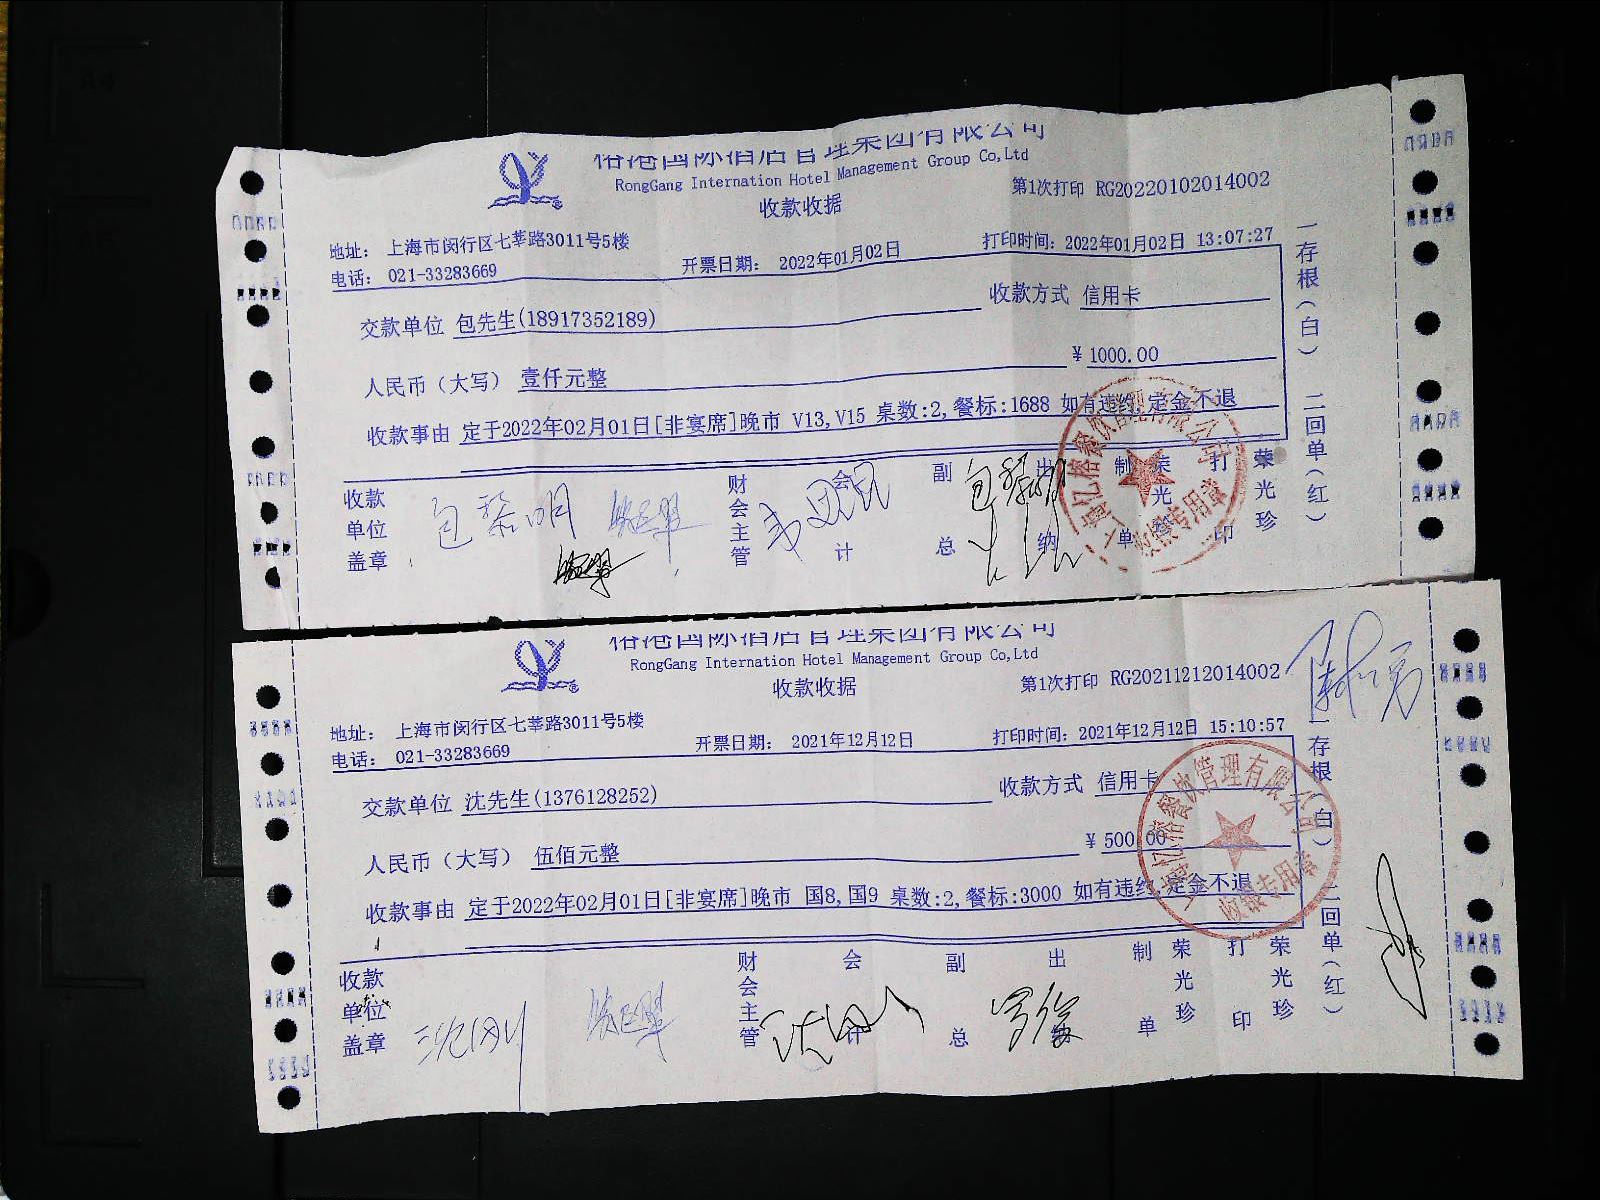 榕港国际酒店管理集团有限公司
RongGang Internation Hotel Management Group Co,Ltd
收款收据
第1次打印 RG20220102014002
地址: 上海市闵行区七莘路3011号5楼
电话: 021-33283669
开票日期: 2022年01月02日
打印时间: 2022年01月02日 13:07:27
交款单位 包先生(18917352189)
收款方式 信用卡
人民币(大写) 壹仟元整
¥ 1000.00
收款事由 定于2022年02月01日[非宴席]晚市 V13,V15 桌数:2,餐标:1688 如有违约,定金不退
收款单位盖章
财会主管
会计
副总
出纳
制单 荣光珍
打印 荣光珍
一存根(白) 二回单(红)
包黎明
收银专用章
榕港国际酒店管理集团有限公司
RongGang Internation Hotel Management Group Co,Ltd
收款收据
第1次打印 RG20211212014002
地址: 上海市闵行区七莘路3011号5楼
电话: 021-33283669
开票日期: 2021年12月12日
打印时间: 2021年12月12日 15:10:57
交款单位 沈先生(1376128252)
收款方式 信用卡
人民币(大写) 伍佰元整
¥ 500.00
收款事由 定于2022年02月01日[非宴席]晚市 国8,国9 桌数:2,餐标:3000 如有违约,定金不退
收款单位盖章
财会主管
会计
副总
出纳
制单 荣光珍
打印 荣光珍
一存根(白) 二回单(红)
餐饮管理有限公司
收银专用章